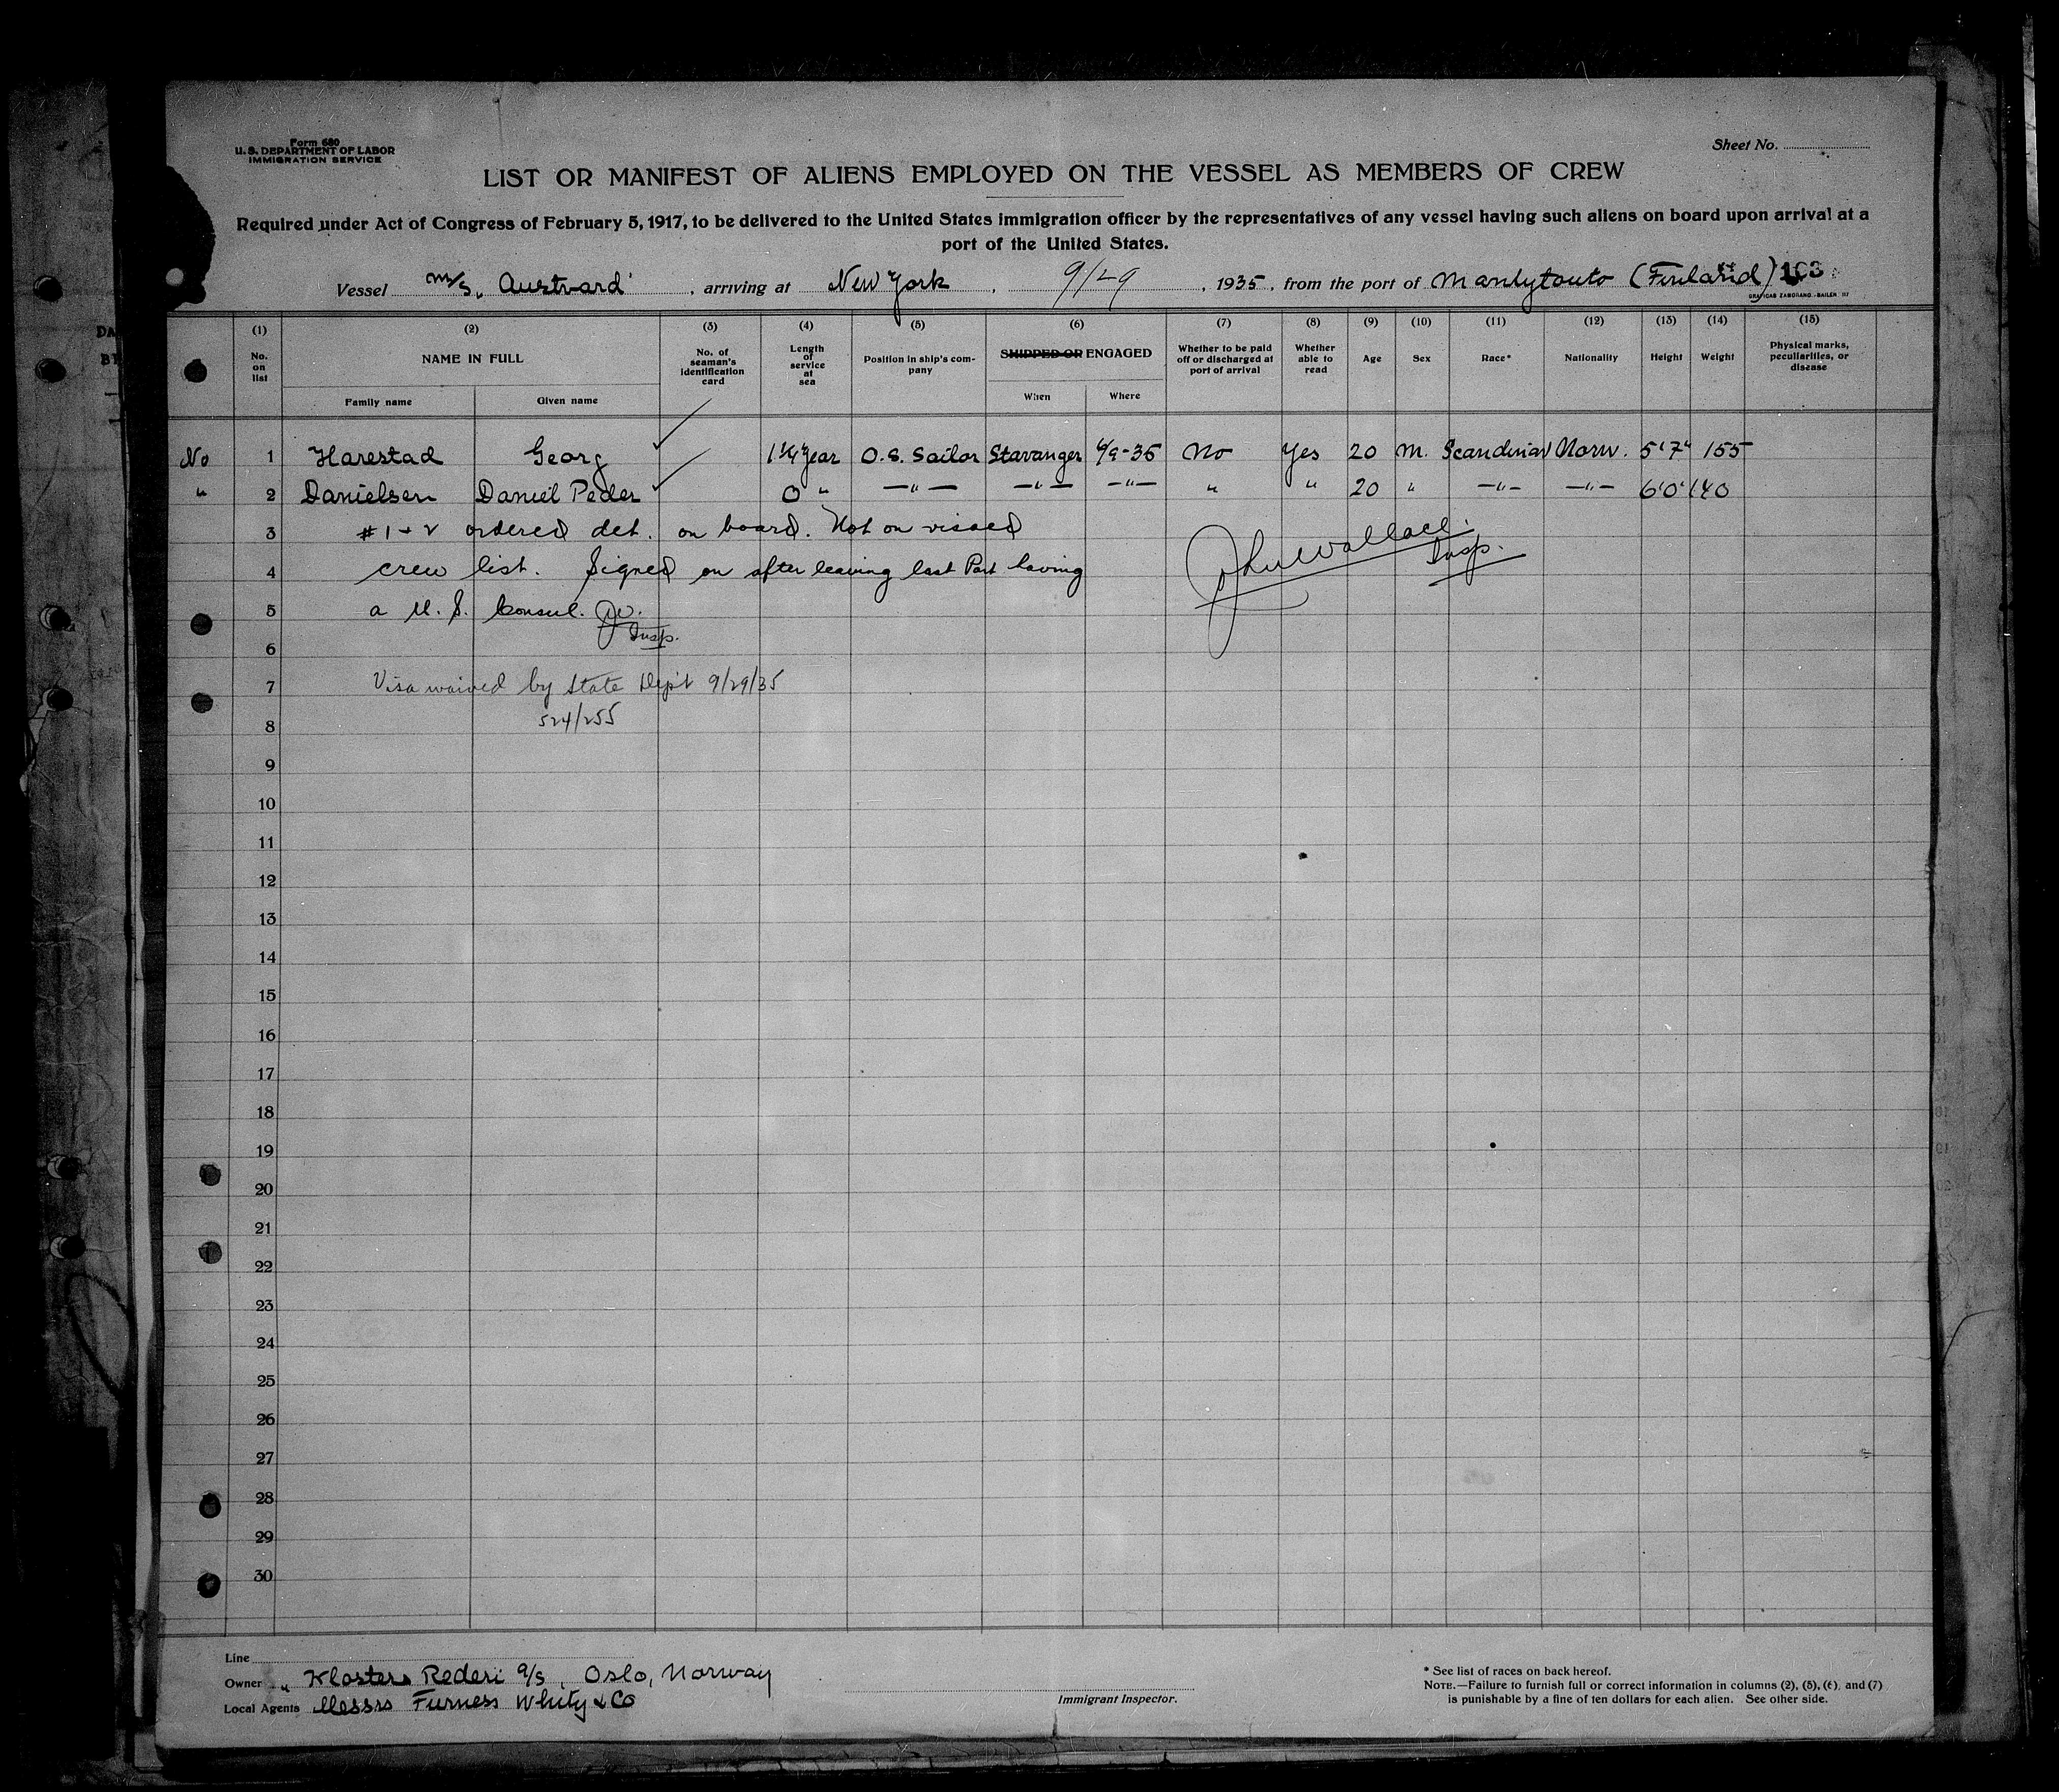 Form 680
U. S. DEPARTMENT OF LABOR
IMMIGRATION SERVICE
Sheet No.
LIST OR MANIFEST OF ALIENS EMPLOYED ON THE VESSEL AS MEMBERS OF CREW
Required under Act of Congress of February 5, 1917, to be delivered to the United States immigration officer by the representatives of any vessel having such aliens on board upon arrival at a
port of the United States.
Vessel m/s "Austvard", arriving at New York, 9/29, 1935, from the port of Mantytouto (Finland) 163
GRAFICAS ZAMORANO.-BAILEN
(1) (2) (3) (4) (5) (6) (7) (8) (9) (10) (11) (12) (13) (14) (15)
No. on list NAME IN FULL No. of seaman's identification card Length of service at sea Position in ship's company SHIPPED OR ENGAGED Whether to be paid off or discharged at port of arrival Whether able to read Age Sex Race* Nationality Height Weight Physical marks, peculiarities, or disease
Family name Given name When Where
No 1 Harestad Georg 1 1/4 Year O.S. Sailor Stavanger 4/9-35 No Yes 20 M. Scandinav Norw. 5'7" 155
" 2 Danielsen Daniel Peder 0 " -"- -"- -"- " " 20 " -"- -"- 6'0" 140
3 #1+2 ordered det. on board. Not on visaed
4 crew list. Signed on after leaving last Port having
John Wallace
Insp.
5 a U. S. Consul. J.W.
Insp.
6
7 Visa waived by State Dep't 9/29/35
8 524/255
9
10
11
12
13
14
15
16
17
18
19
20
21
22
23
24
25
26
27
28
29
30
Line
Owner " Klosters Rederi a/s, Oslo, Norway
Local Agents Messrs Furness Whity & Co
Immigrant Inspector.
* See list of races on back hereof.
NOTE.—Failure to furnish full or correct information in columns (2), (5), (6), and (7)
is punishable by a fine of ten dollars for each alien. See other side.